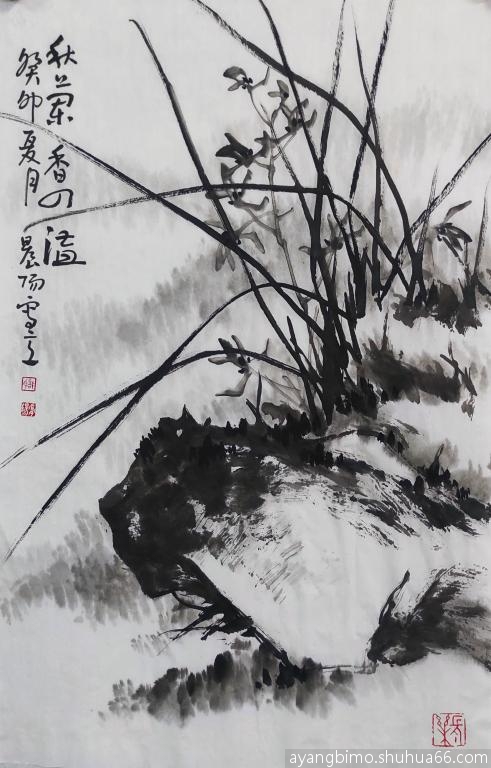 秋蘭香四溢
癸卯夏月晨阳
ayangbimo.shuhua66.com